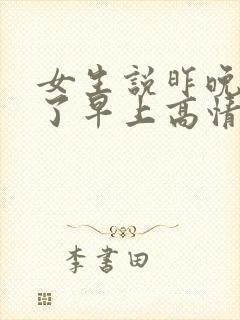 女生説昨晚
了早上高情
李書田